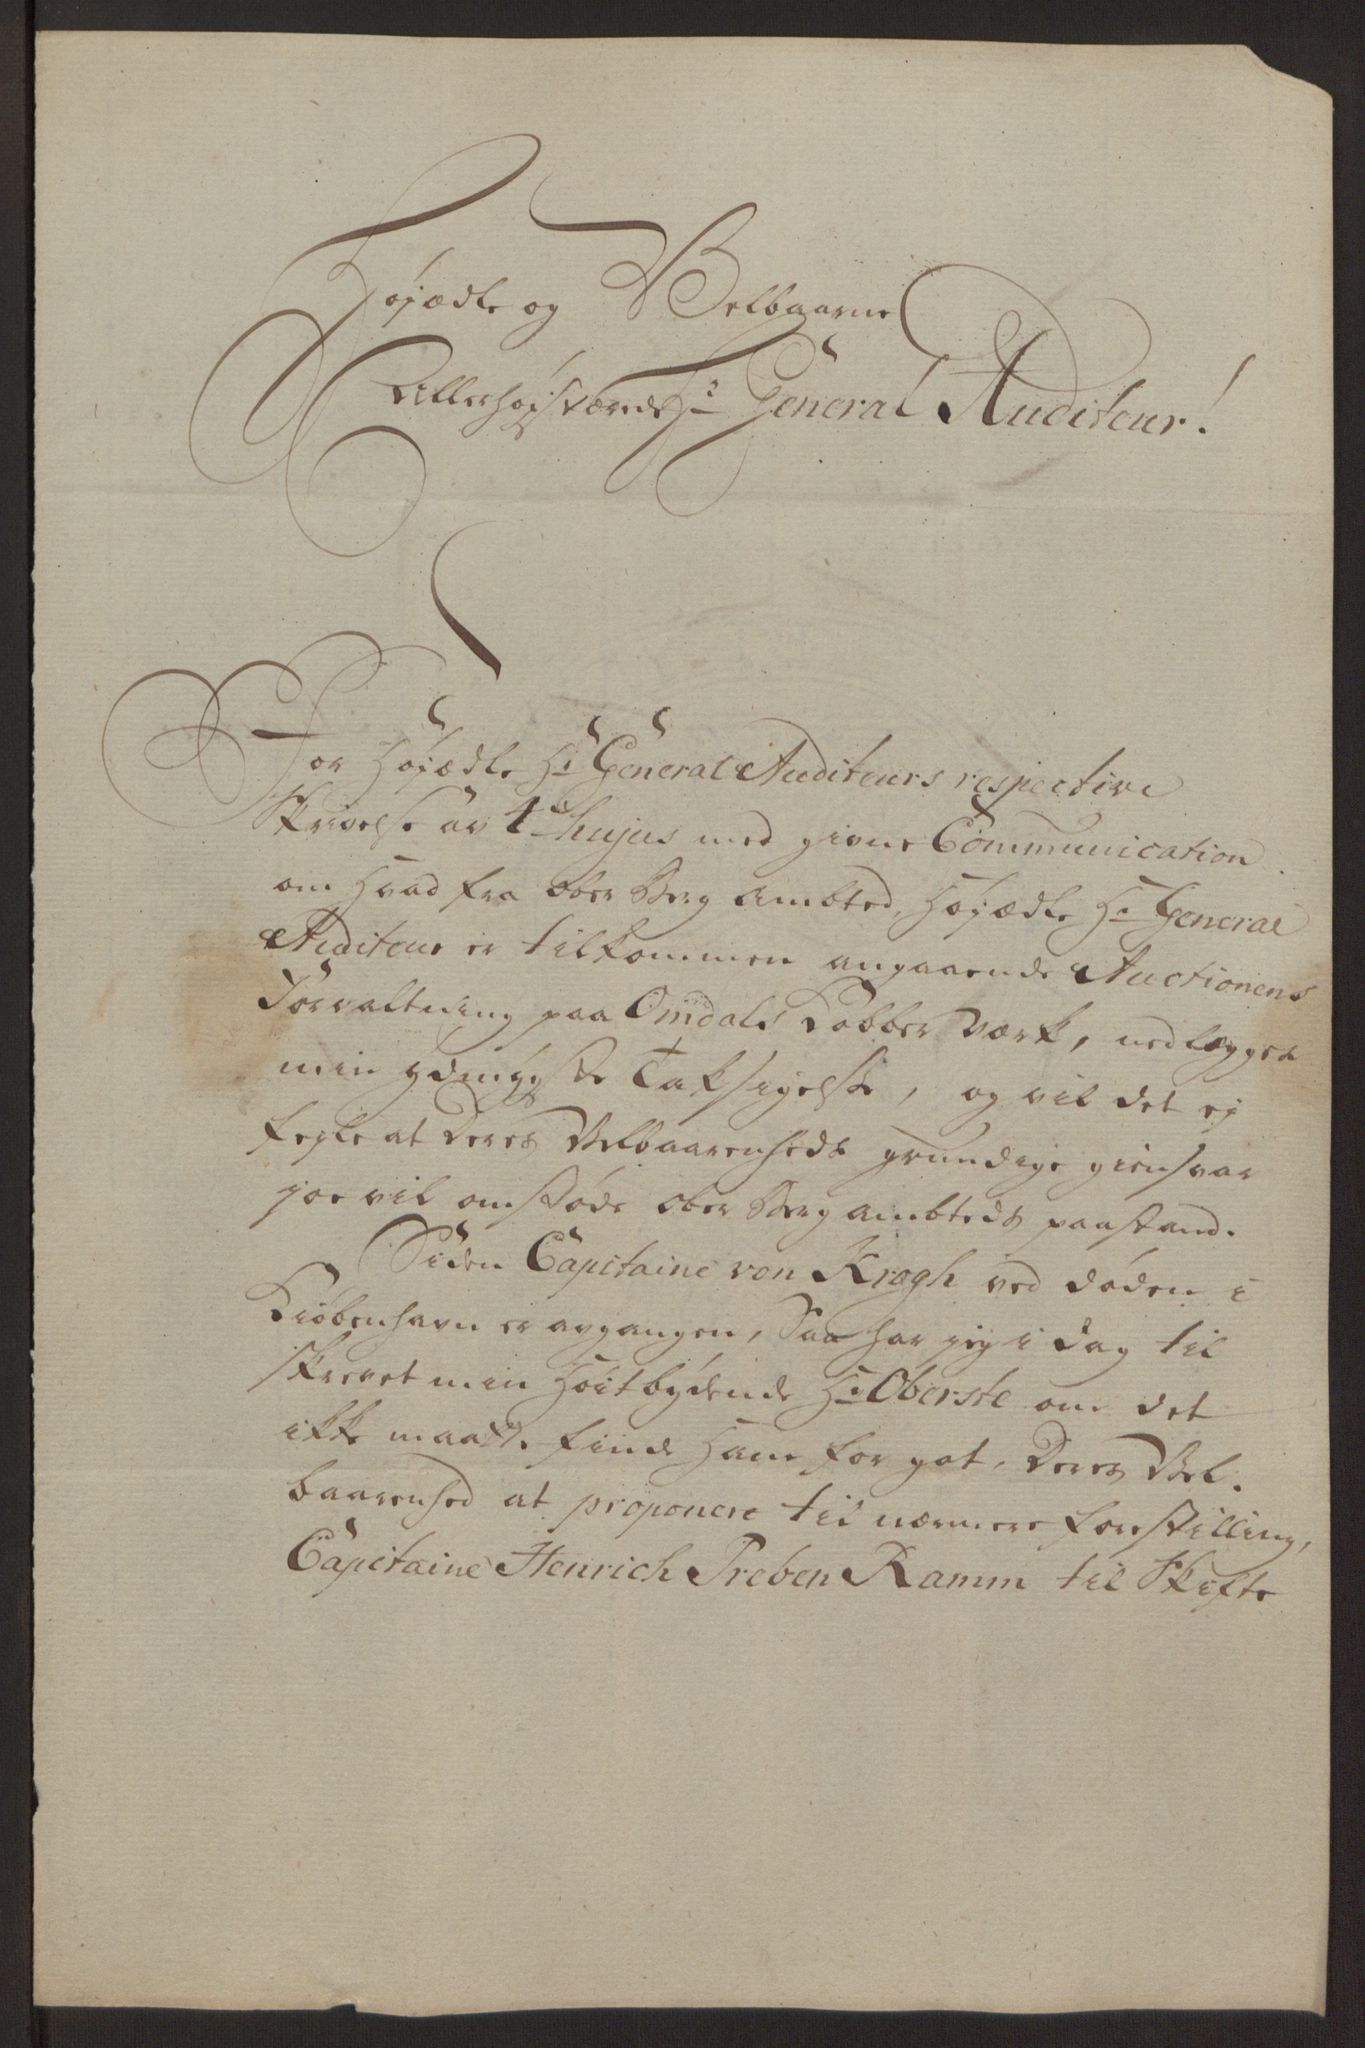 Højædle og Velbaarne
Allerhøjstærede Hr General Auditeur!
For Højædle Hr General Auditeurs respective
Skrivelse av 1te hujus med givne Communication
om Hvad fra Ober Berg Ambted, Højædle Hr General
Auditeur er tilkommen angaaende Auctionens
Forvaltning paa Omdals Kobber Værk, nedlægges
min ydmygste Taksigelse, og vil det ej
fejle at Deres Velbaarenheds grundige giensvar
joe vil omstøde Ober Berg Ambteds paastand.
Siden Capitaine von Krogh ved døden i
Kiøbenhavn er avgangen, Saa har jeg i dag til
skrevet min Høitbydende Hr Oberste om det
ikke maatte finde Ham for got, Deres Vel-
baarenhed at proponere til nærmere forestilling,
Capitaine Henrich Preben Ramm til Skifte